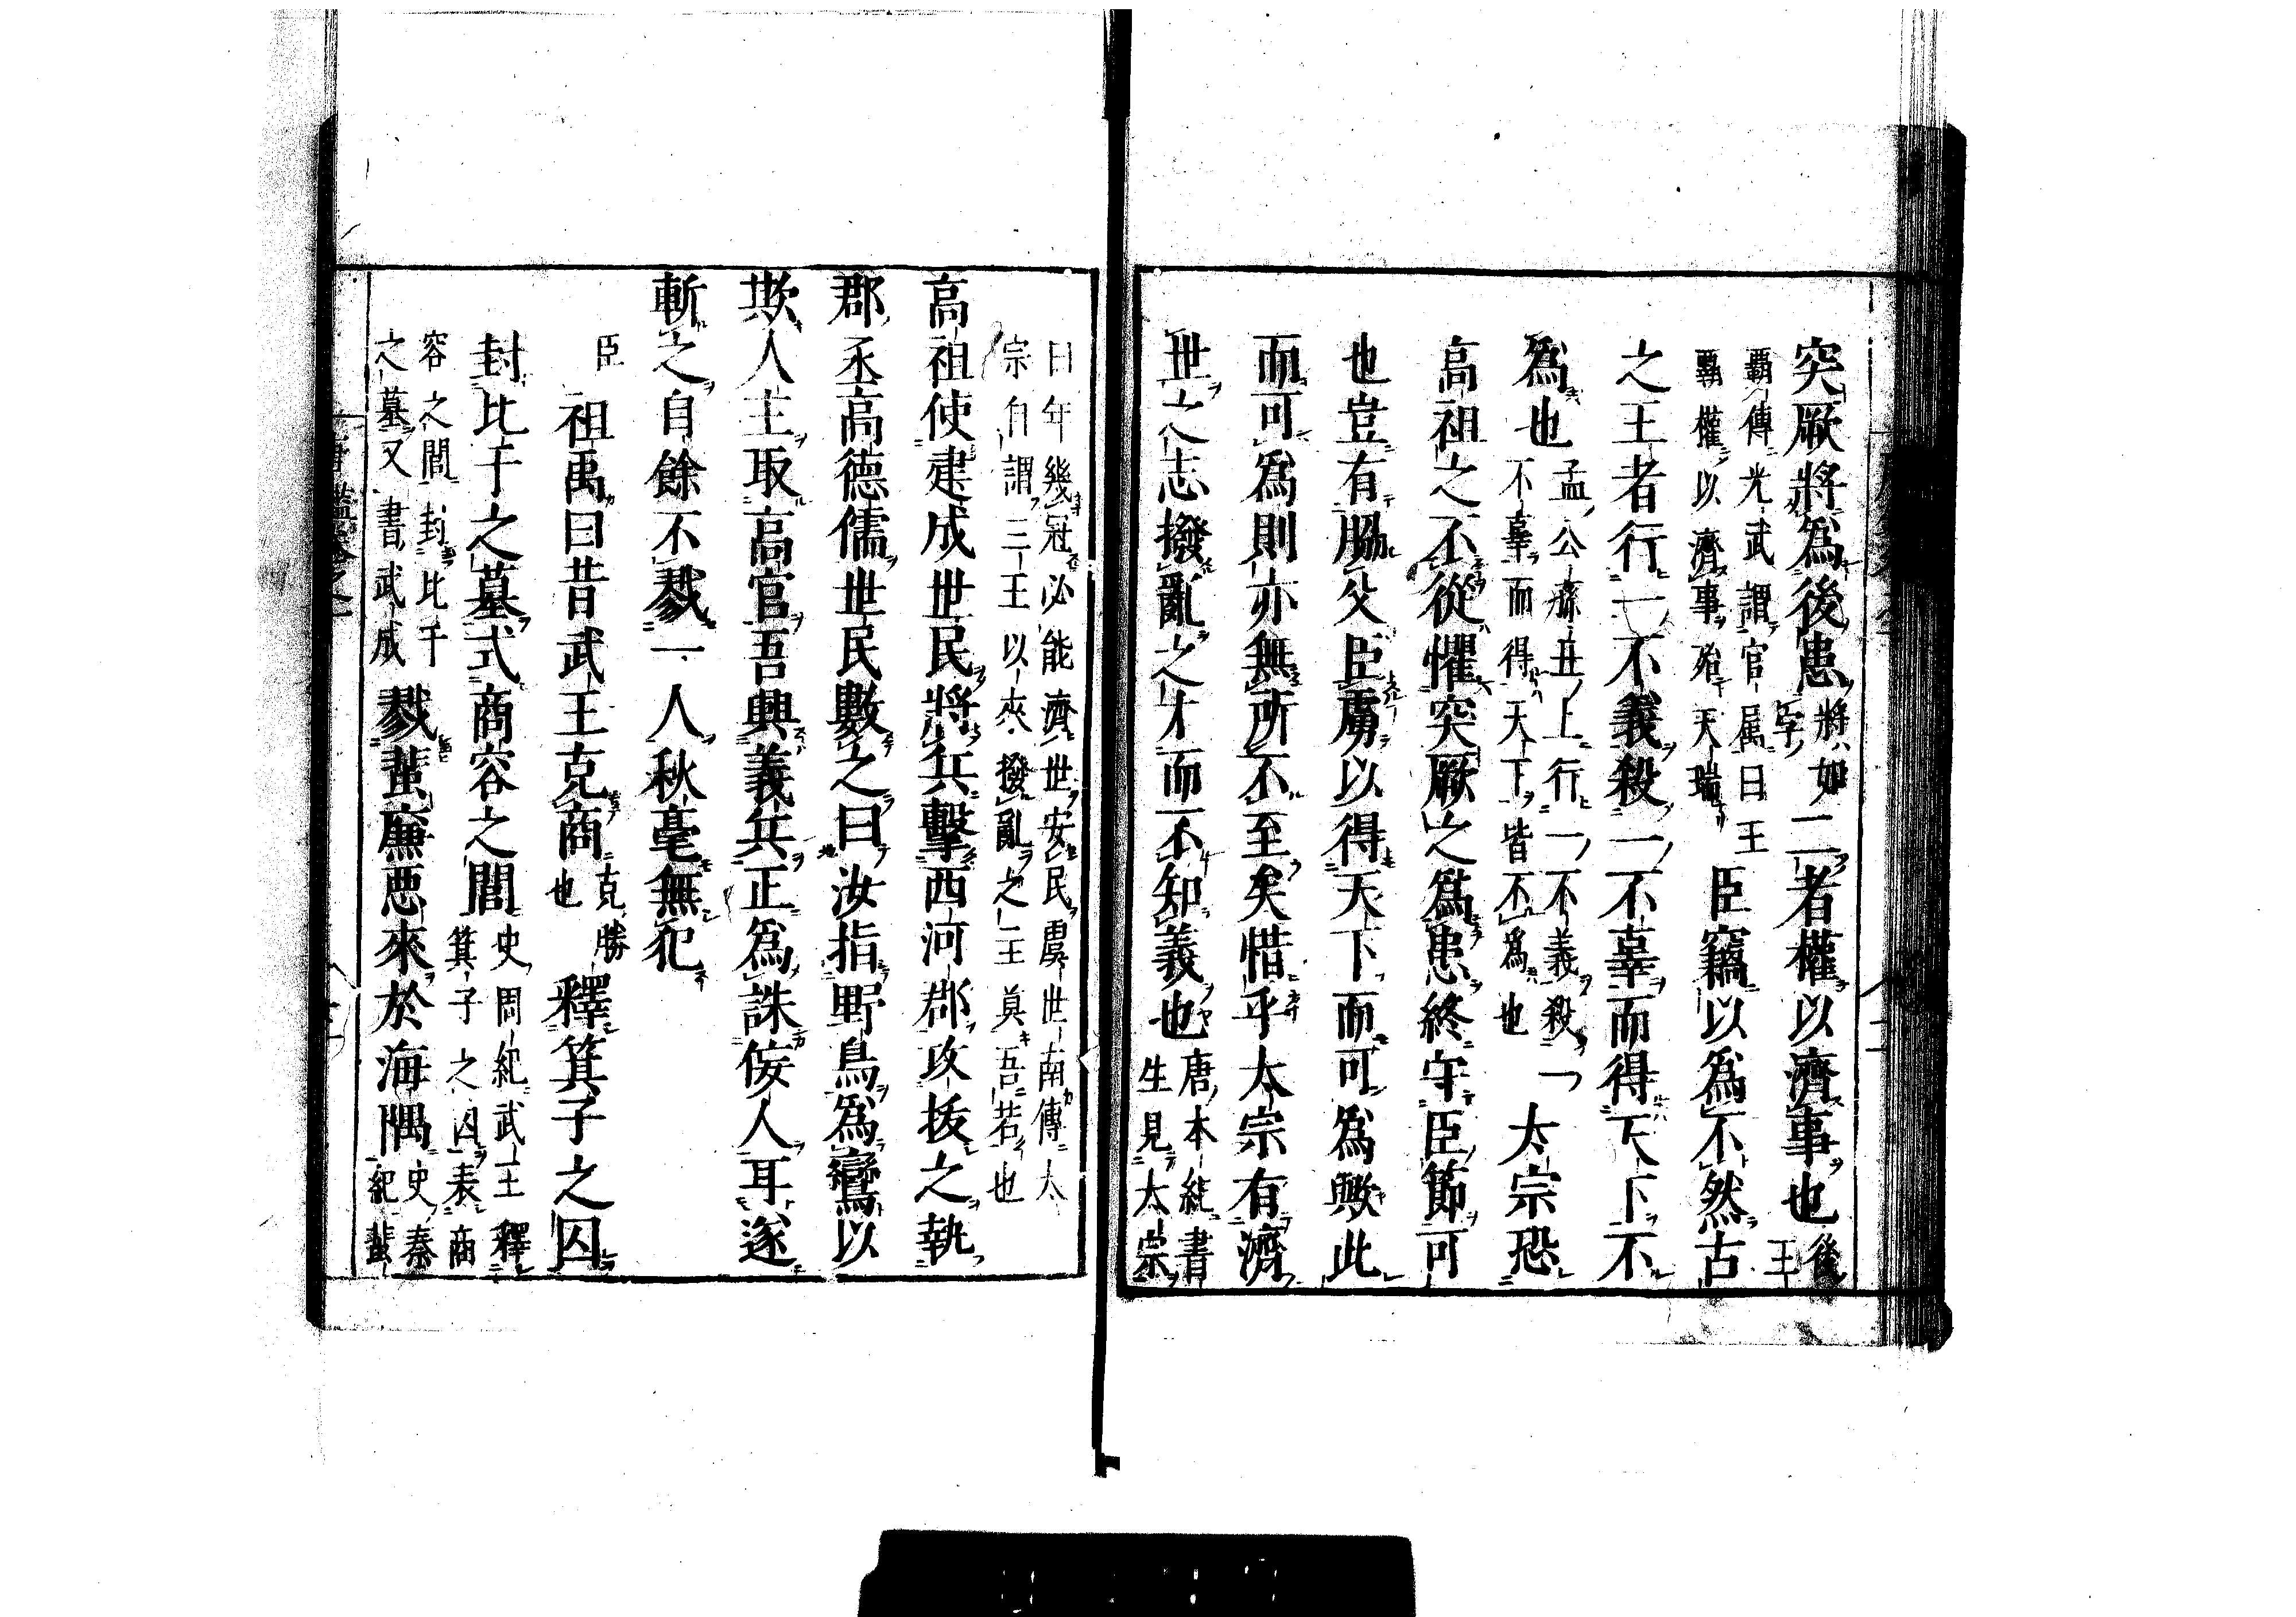 突厥將爲後患將如字二者權以濟事也後王
覇傳光武謂官属曰王覇權以濟事殆天瑞臣竊以爲不然古
之王者行一不義殺一不辜而得天下不
爲也孟公孫丑上行一不義殺一不辜而得天下皆不爲也太宗恐
高祖之不從懼突厥之爲患終守臣節可
也豈有脇父臣虜以得天下而可爲歟此
而可爲則亦無所不至矣惜乎太宗有濟
世之志撥亂之才而不知義也唐本紀書生見太宗
曰年幾冠必能濟世安民虞世南傳太宗自謂三王以來撥亂之主莫吾若也
高祖使建成世民將兵擊西河郡攻拔之執
郡丞高德儒世民數之曰汝指野鳥爲鸞以
欺人主取高官吾興義兵正爲誅佞人耳遂
斬之自餘不戮一人秋毫無犯
臣祖禹曰昔武王克商克勝也釋箕子之囚
封比干之墓式商容之閭史周紀武王釋箕子之囚表商
容之閭封比干之墓又書武成戮蜚廉惡來於海隅史秦紀蜚